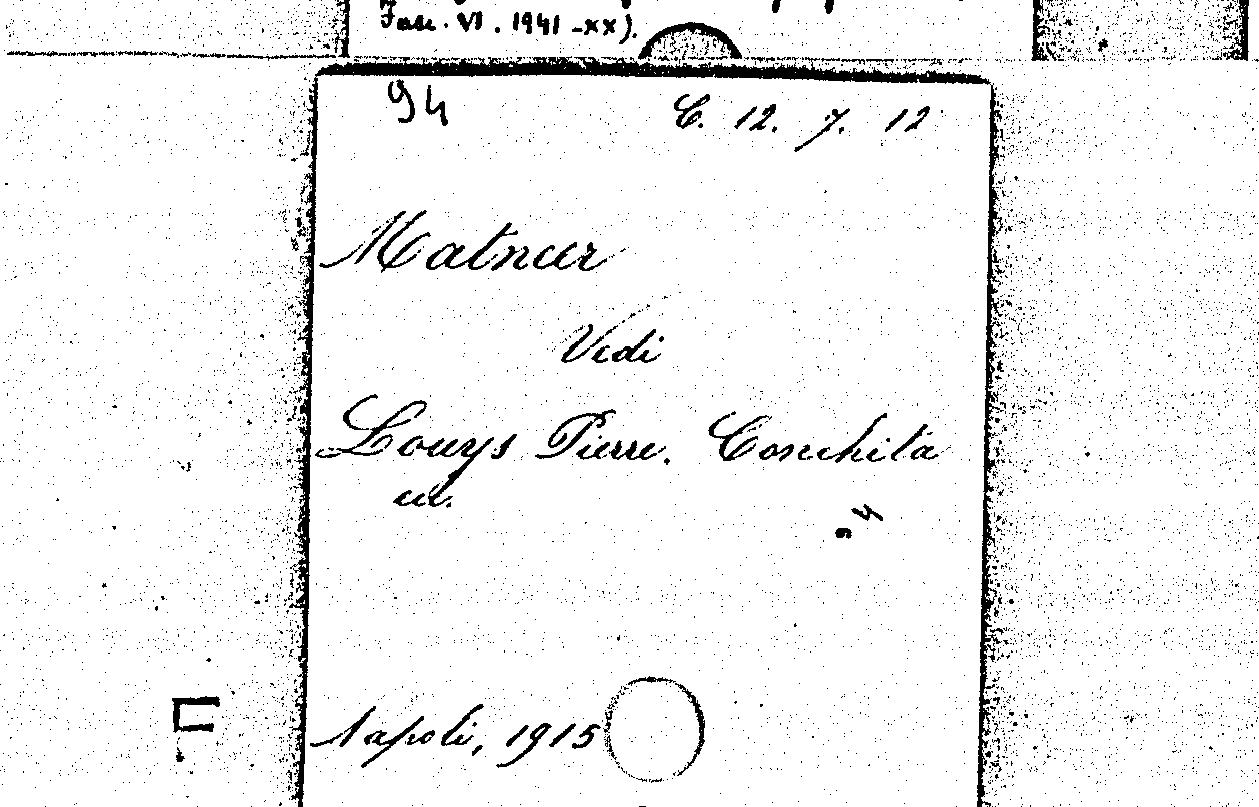 Fasc. VI. 1941-XX).
94 C. 12. 7. 12
Vedi
Louys Pierre. Conchita
Napoli, 1915